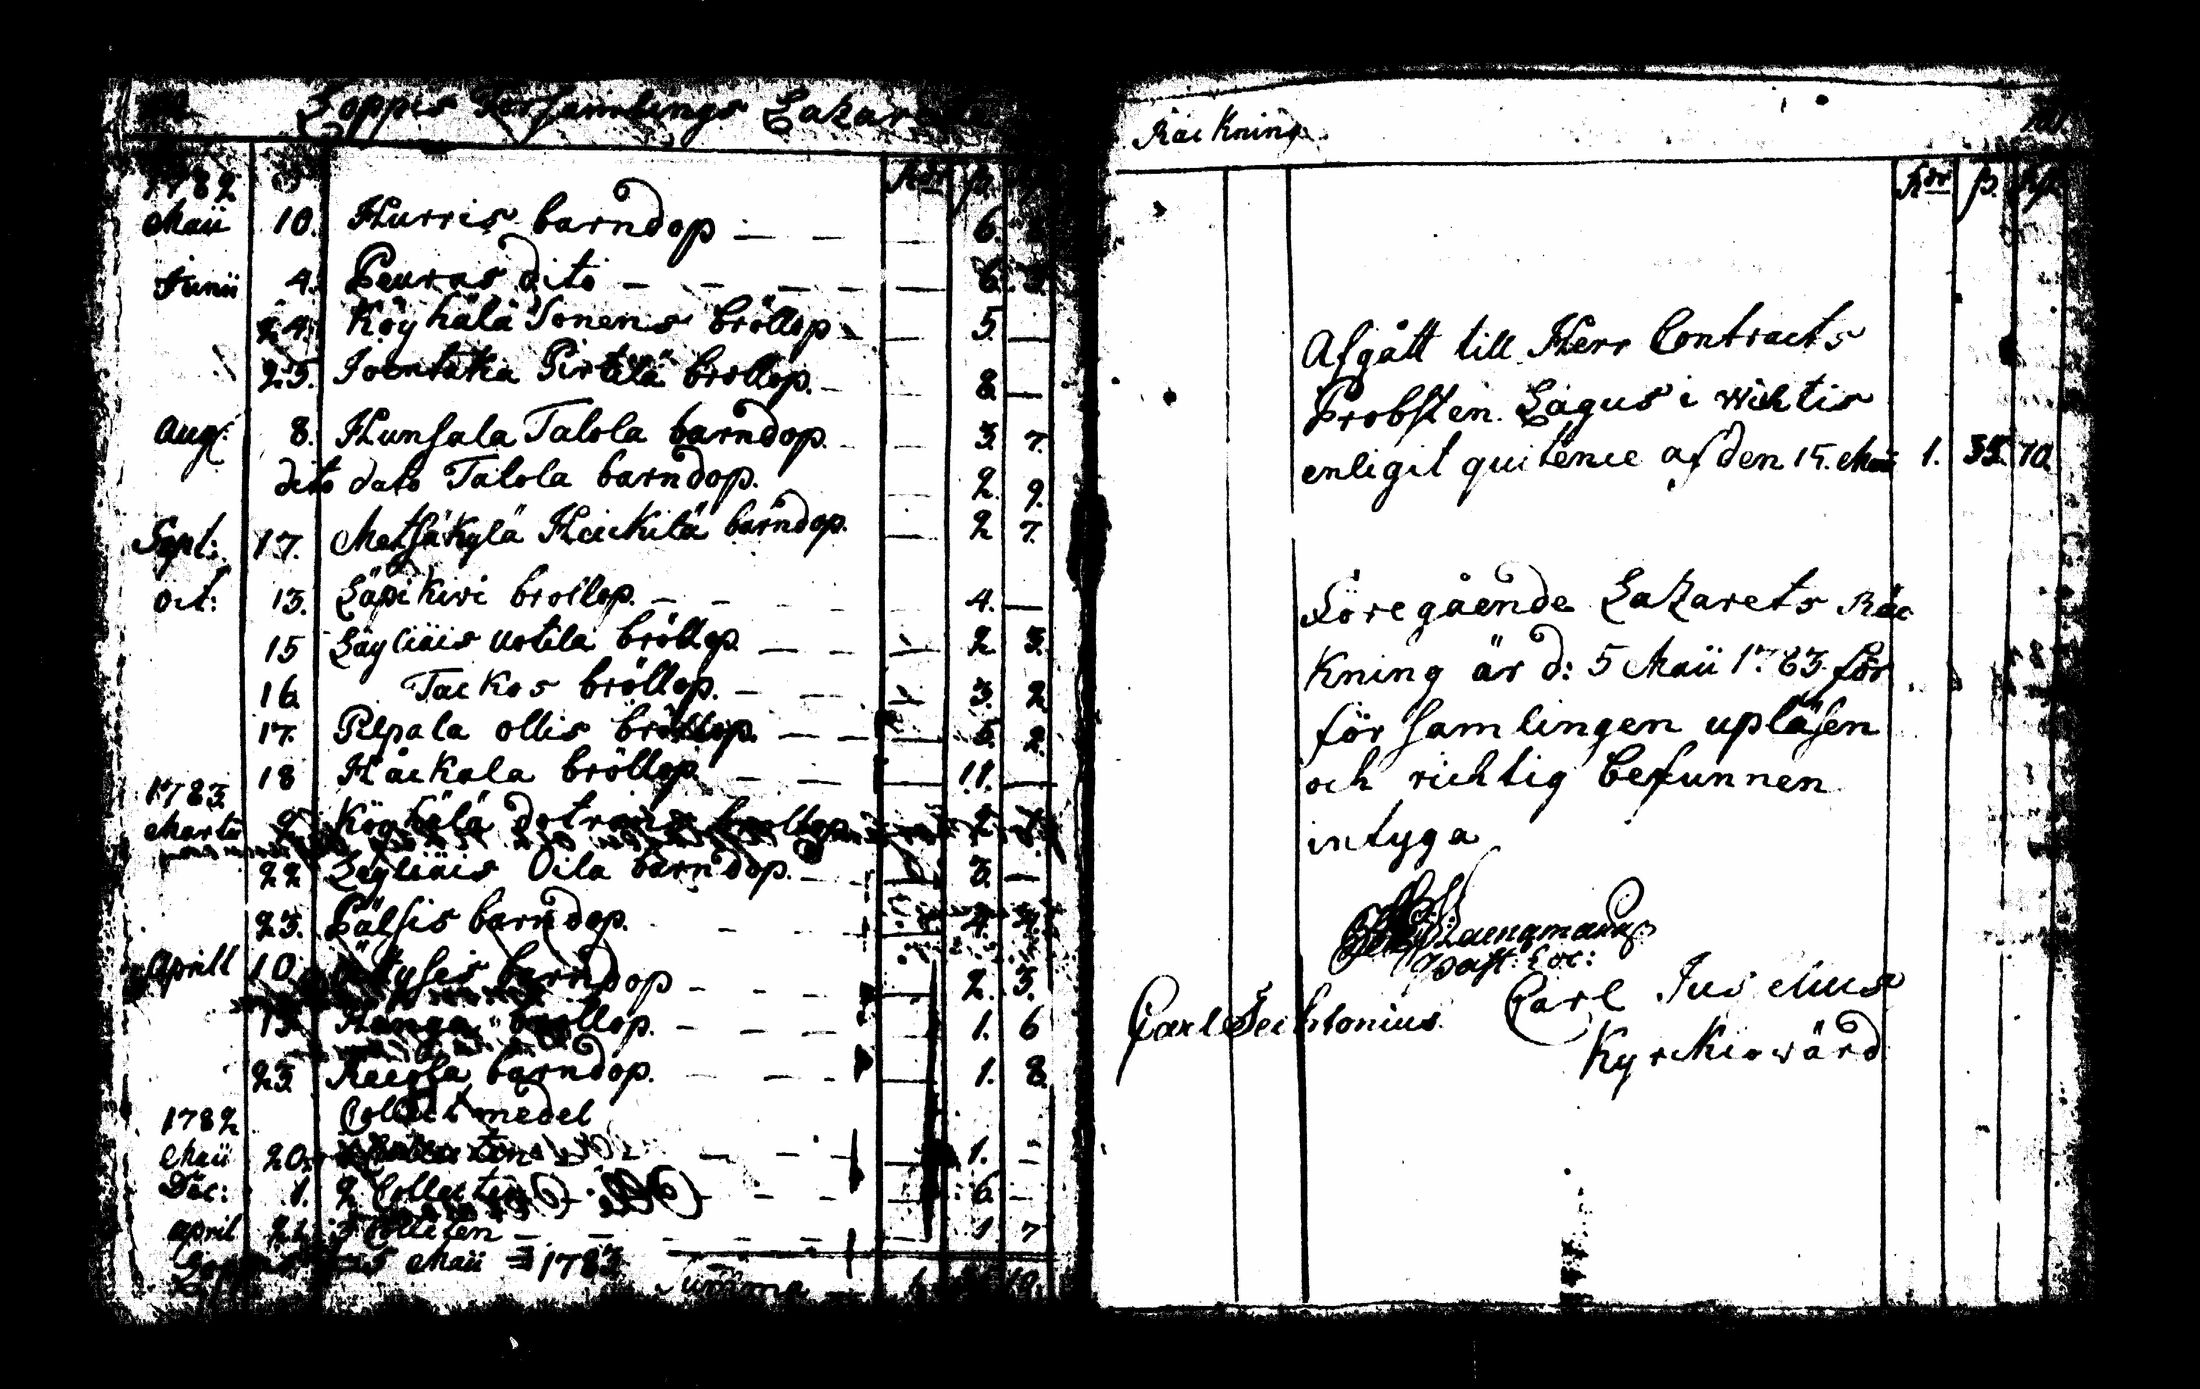 Loppis Församlings Lazarets
1782 Rdr ß.
Maii 10. Hurris barndop — — — 6.
Junii 4. Peuras dito — — — — — 6. 3.
24. Köyhälä Sonens bröllop — 5. —
25. Joentaka Pirtilä bröllop. — 8 —
Aug: 8. Hunsala Talola barndop. — — 3. 7.
dito dato Talola barndop. 2. 9.
Sept: 17. Metsäkylä Heickilä barndop. — 2 7.
Oct: 13. Läpikivi bröllop. — — — — — 4. —
15 Läyliäis Uotila bröllop — — — 2 3.
16. Tackos bröllop. — — — 3. 2
17. Pilpala Ollis bröllop. — — — 5. 2.
18 Håckala bröllop — — — 11. —
1783
Martii 2 Köyhälä dotrens bröllop
22 Läyliäis Oila barndop. — — — 3. —
23. Pälsis barndop. — — — 4. 4.
Aprill 10. barndop — — — — 2. 3.
bröllop. — — — — 1. 6
23. barndop. — — — — 1. 8.
1782 Collect medel
Maii 20. — — — 1. —
Dec: 1. 2 Collecter — — — 6. —
April 3 Collecten — — — — — — 1. 7
5 Maii 1783
Summa — 10.
Räckning
Rdr ß.
Afgått till Herr Contracts
Probsten Lagus i Wichtis
enligit quitence af den 15. Maii 1. 35. 10.
Föregående Lazarets Räc
kning är d: 5 Maii 1783 för
församlingen upläsen
och richtig befunnen
intyga
Past: Loc:
Carl Juselius
Carl Techtonius.
Kyrckiowärd